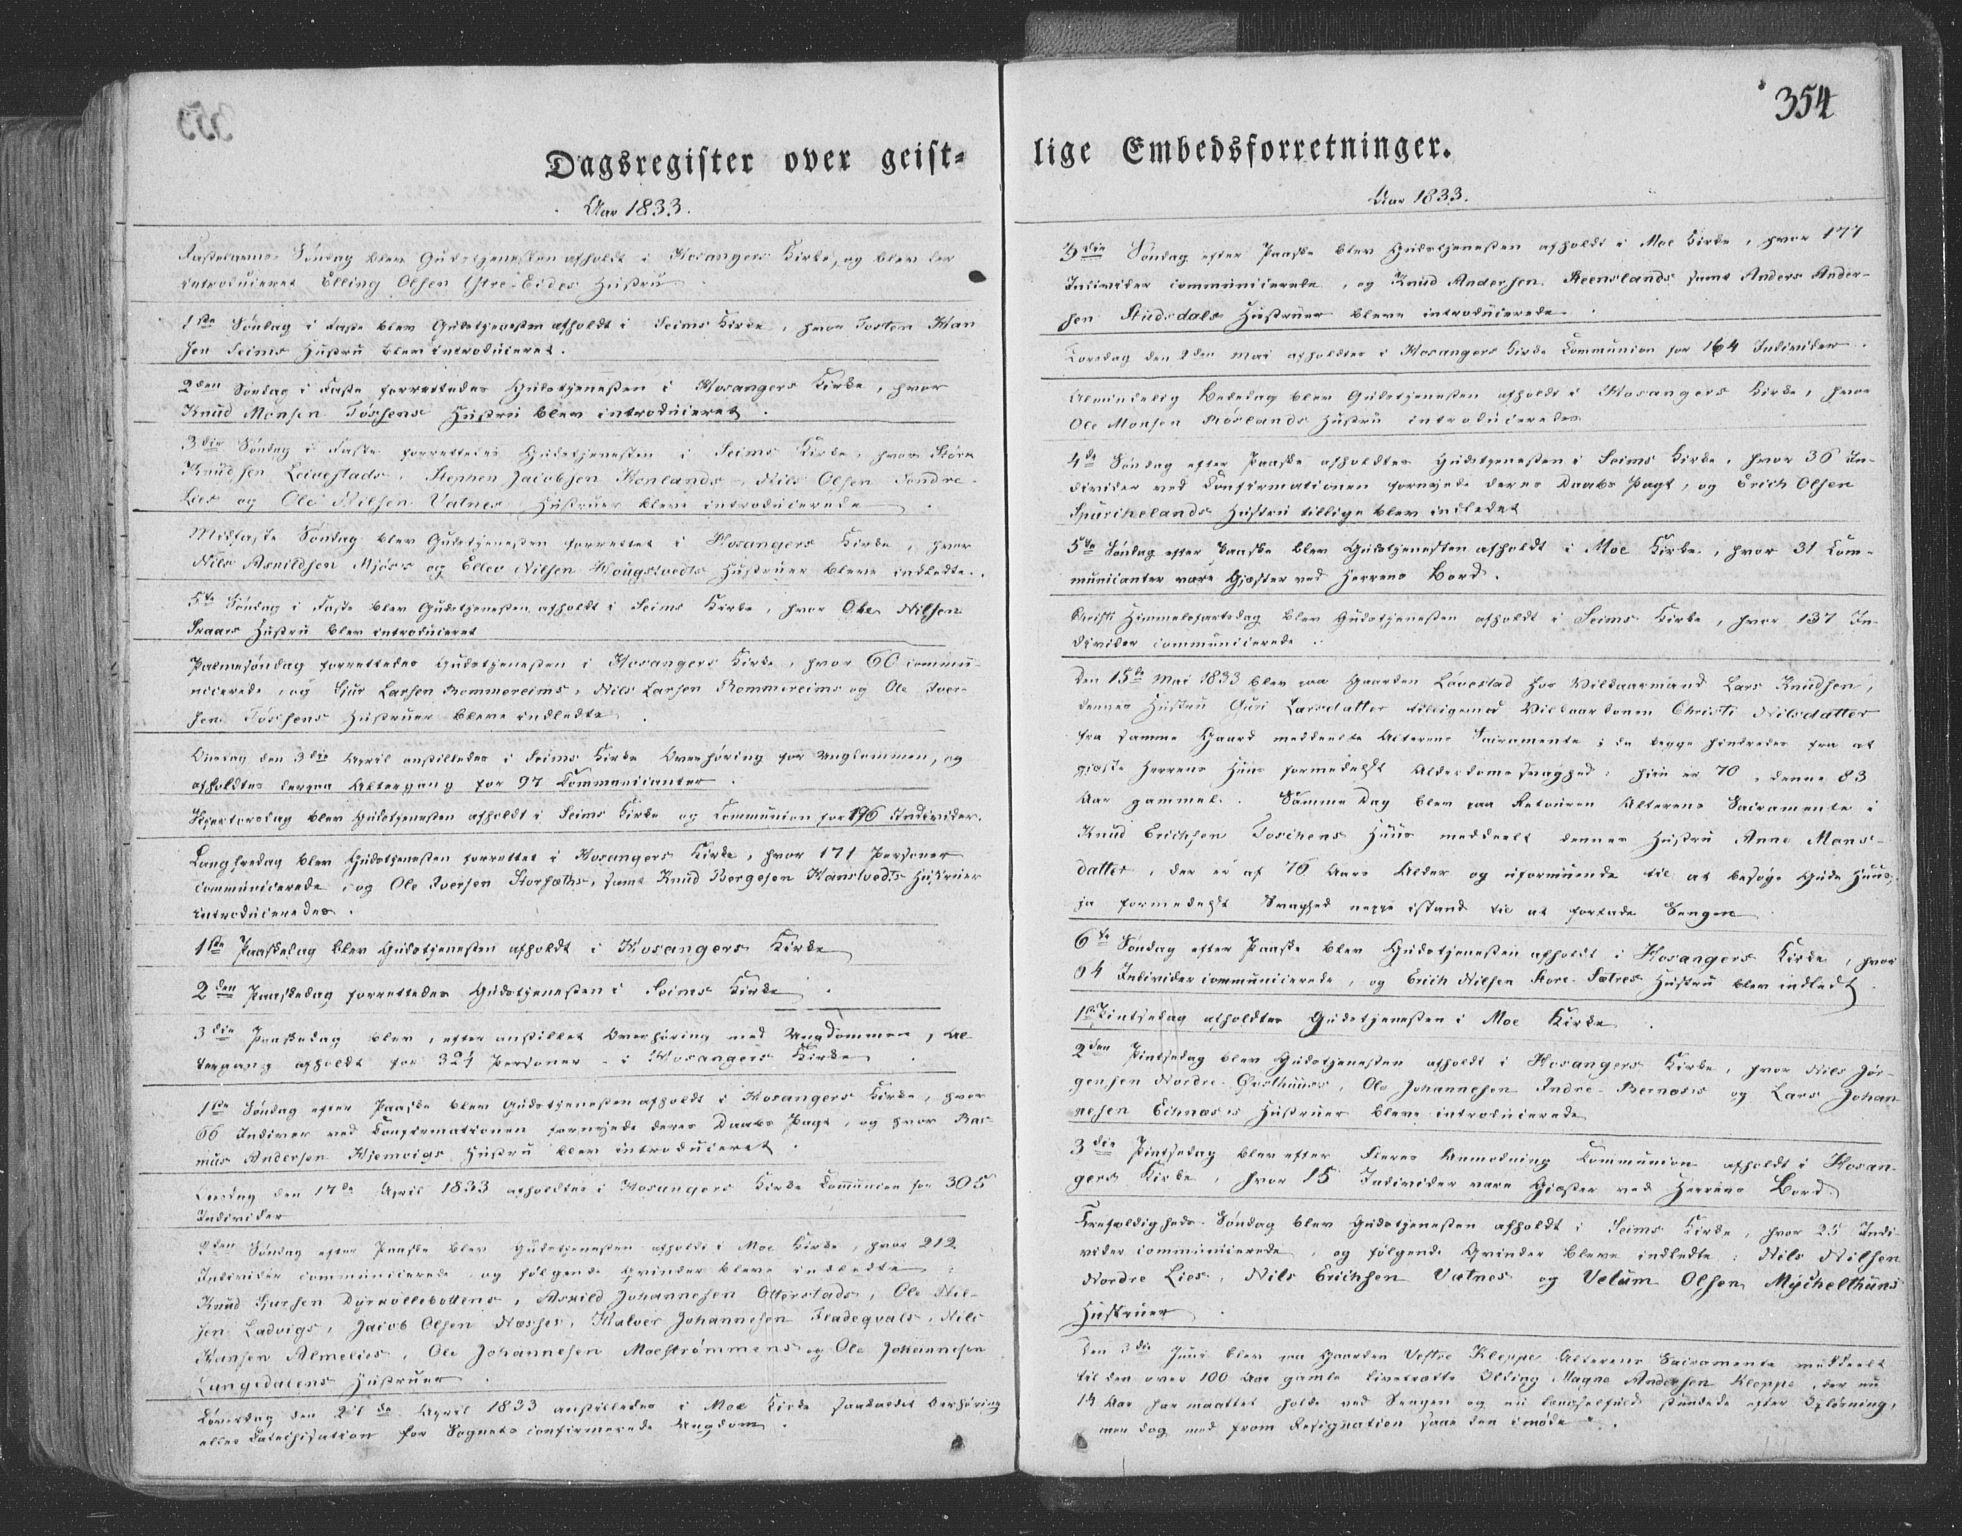 354
Dagsregister over geist-
Aar 1833.
Fastelavns Søndag blev Gudstjenesten afholdt i Hosangers Kirke, og blev der
introduceret Elling Olsen Ytre-Eides Hustru
1ste Søndag i Faste blev Gudstjenesten afholdt i Seims Kirke, hvor Torsten Han
sen Seims Hustru blev introduceret.
2den Søndag i Faste forrettedes Gudstjenesten i Hosangers Kirke, hvor
Knud Monsen Toschens Hustru blev introduceret.
3die Søndag i Faste forrettedes Gudstjenesten i Seims Kirke, hvor
Knudsen Leivestads, Stephen Jacobsen Konlands, Nils Olsen Søndre-
Lies og Ole Nilsen Vatnes Hustruer bleve introducerede.
Midfaste Søndag blev Gudstjenesten forrettet i Hosangers Kirke, hvor
Nils Askildsen Mjøs og Ellev Nilsen Hougstvedts Hustruer bleve indledte.
5te Søndag i Faste blev Gudstjenesten afholdt i Seims Kirke, hvor Ole Nilsen
Hustru blev introduceret
Palmesøndag forrettedes Gudstjenesten i Hosangers Kirke, hvor 60 commu-
nicerede, og Sjur Larsen Rommereims, Nils Larsen Rommereims og Ole Iver-
sen Toschens Hustruer bleve indledte.
Onsdag den 3die April anstilledes i Seims Kirke Overhøring for Ungdommen, og
afholdtes derpaa Altergang for 97 Communicanter.
Skjertorsdag blev Gudstjenesten afholdt i Seims Kirke og Communion for 196 Individer.
Langfredag blev Gudstjenesten forrettet i Hosangers Kirke, hvor 171 Personer
communicerede, og Ole Iversen Storsæths, samt Knud Børgesen Hanstvedts Hustruer
introduceredes.
1ste Paaskedag blev Gudstjenesten afholdt i Hosangers Kirke
2den Paaskedag forrettedes Gudstjenesten i Seims Kirke.
3die Paaskedag blev, efter anstillet Overhøring med Ungdommen, Al
tergang afholdt for 324 Personer i Hosangers Kirke.
1ste Søndag efter Paaske blev Gudstjenesten afholdt i Hosangers Kirke, hvor
66 Indiver ved Confirmationen fornyede deres Daabs Pagt, og hvor Ras
mus Andersen Hjemvigs Hustru blev introduceret.
Onsdag den 17de April 1833 afholdtes i Hosangers Kirke Communion for 305
Individer
2den Søndag efter Paaske blev Gudstjenesten afholdt i Moe Kirke, hvor 212
Individer communicerede og følgende Qvinder bleve indledte:
Knud Sjursen Dyrkollebottens, Askild Johannesen Otterstads, Ole Nil-
sen Ladvigs, Jacob Olsen Næsses, Halvor Johannesen Fladeqvals, Nils
Hansen Almelies, Ole Johannesen Moestrømmens og Ole Johannesen
Langedalens Hustruer.
Løverdag den 27de April 1833 anstilledes i Moe Kirke Overhøring
eller Catechisation for Sognets confirmerede Ungdom.
lige Embedsforretninger.
Aar 1833.
3die Søndag efter Paaske blev Gudstjenesten afholdt i Moe Kirke, hvor 177
Individer communicerede, og Knud Andersen Reenslands samt Anders Ander-
sen Studsdals Hustruer bleve introducerede.
Torsdag den 2den Mai afholdtes i Hosangers Kirke Communion for 164 Individer.
Almindelig Bededag blev Gudstjenesten afholdt i Hosangers Kirke, hvor
Ole Monsen Røslands Hustru introduceredes
4de Søndag efter Paaske afholdtes Gudstjenesten i Seims Kirke, hvor 36 In-
divider ved Confirmationen fornyede deres Daabs Pagt, og Erich Olsen
Spurchelands Hustru tillige blev indledet
5te Søndag efter Paaske blev Gudstjenesten afholdt i Moe Kirke, hvor 31 Com-
municanter vare Gjæster ved Herrens Bord.
Christi Himmelsfartsdag blev Gudstjenesten afholdt i Seims Kirke, hvor 137 In-
divider communicerede.
Den 15de Mai 1833 blev paa Gaarden Løvestad hos Vilkaarmand Lars Knudsen,
dennes Hustru Guri Larsdatter tilligemed Vilkaarkonen Christi Nilsdatter
fra samme Gaard meddeelte Alterens Sacramente; da begge hindredes fra at
gjæste Herrens Huus formedelst Alderdomssvaghed; hiin er 70, denne 83
Aar gammel. Samme Dag blev paa Retouren Alterens Sacramente i
Knud Erichsen Toschens Huus meddeelt dennes Hustru Anne Mons-
datter, der er af 76 Aars Alder og uformuende til at besøge Guds Huus,
ja formedelst Svaghed neppe istand til at forlade Sengen
6te Søndag efter Paaske blev Gudstjenesten afholdt i Hosangers Kirke, hvor
94 Individer communicerede, og Erich Nilsen Store-Sætres Hustru blev indledt.
1ste Pintsedag afholdtes Gudstjenesten i Moe Kirke.
2den Pintsedag blev Gudstjenesten afholdt i Hosangers Kirke, hvor Nils Jør-
gensen Nordre-Qvsthuus, Ole Johannesen Indre Bernæs og Lars Johan
nesen Echnæs's Hustruer bleve introducerede
3die Pintsedag blev efter Fleres Anmodning Communion afholdt i Hosan-
gers Kirke, hvor 15 Individer vare Gjæster ved Herrens Bord.
Trefoldigheds Søndag blev Gudstjenesten afholdt i Seims Kirke, hvor 25 Indi-
vider communicerede, og følgende Qvinder bleve indledte: Nils Nilsen
Nordre Lies, Nils Erichsen Vatnes og Velum Olsen Mychelthuns
Hustruer.
Den 3die Juni blev paa Gaarden Vestre Kleppe Alterens Sacramente meddeelt
til den over 100 Aar gamle livstrætte Olding Magne Andersen Kleppe, der nu
14 Aar har maattet holde ved Sengen og nu længselfuld stundede efter Opløsning,
men dog med from Resignation saae den imøde.